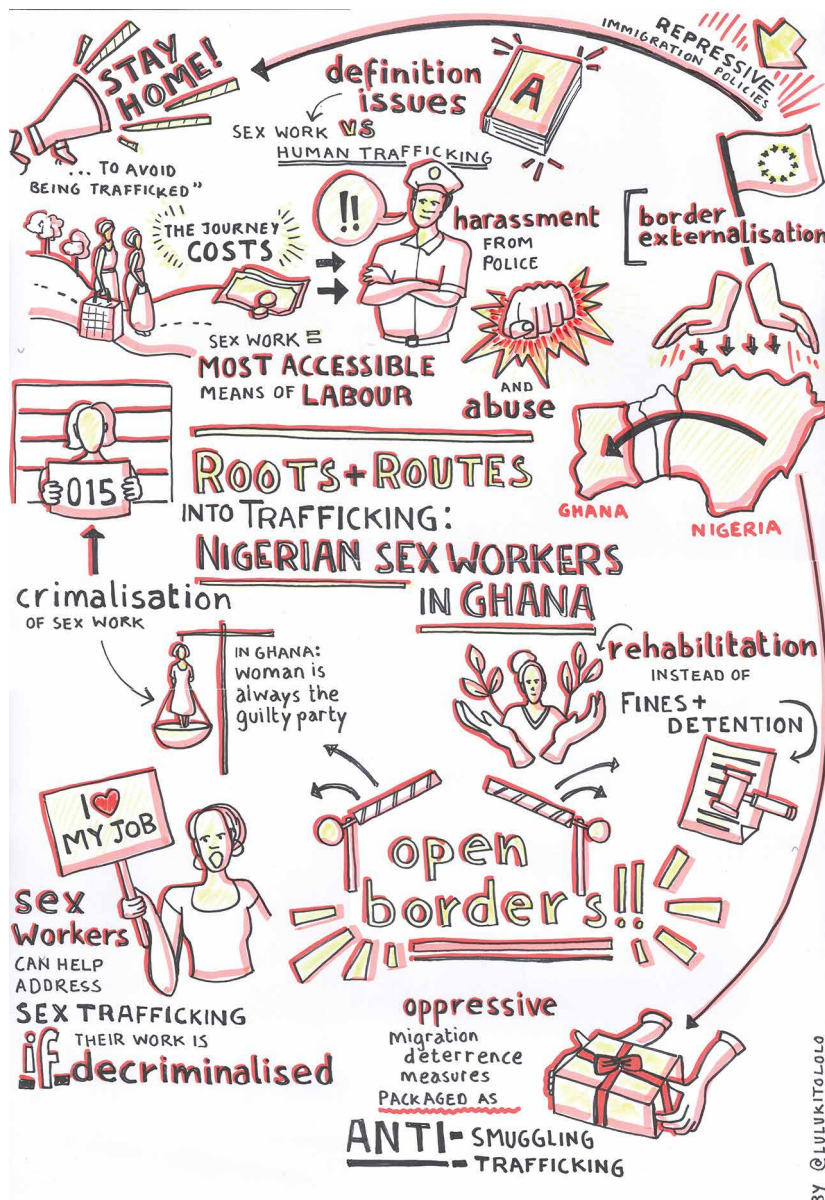 STAY
HOME!
... TO AVOID
BEING TRAFFICKED"
definition
issues
SEX WORK VS
HUMAN TRAFFICKING
A
REPRESSIVE
IMMIGRATION POLICIES
border
externalisation
THE JOURNEY
COSTS
!!
harassment
FROM
POLICE
AND
abuse
SEX WORK =
MOST ACCESSIBLE
MEANS OF LABOUR
015
GHANA
NIGERIA
ROOTS + ROUTES
INTO TRAFFICKING:
NIGERIAN SEX WORKERS
IN GHANA
crimalisation
OF SEX WORK
IN GHANA:
woman is
always the
guilty party
rehabilitation
INSTEAD OF
FINES +
DETENTION
I ♥
MY JOB
sex
workers
CAN HELP
ADDRESS
SEX TRAFFICKING
if THEIR WORK IS
decriminalised
open
borders!!
oppressive
migration
deterrence
measures
PACKAGED AS
ANTI - SMUGGLING
- TRAFFICKING
BY @LULUKITOLOLO